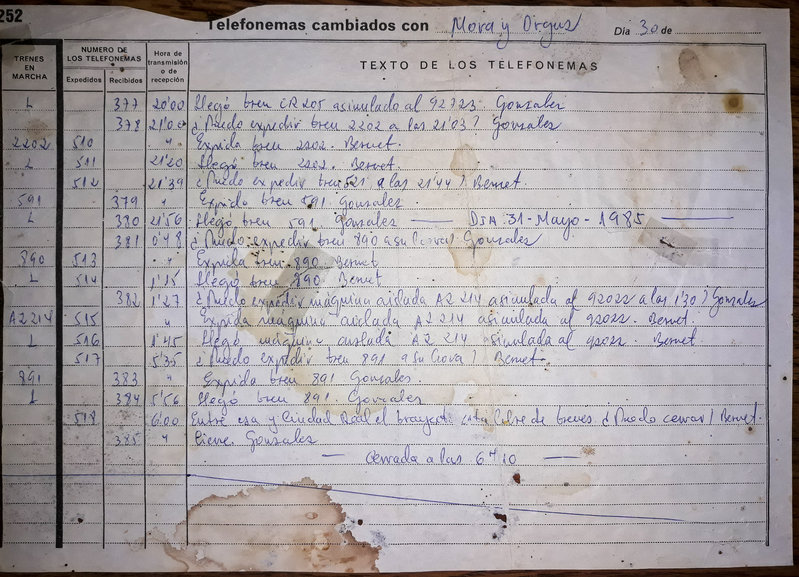 252
Telefonemas cambiados con Mora y Orgus Día 30 de
TRENES EN MARCHA
NUMERO DE LOS TELEFONEMAS
Expedidos Recibidos
Hora de transmisión o de recepción
TEXTO DE LOS TELEFONEMAS
L 377 20'00 Llegó tren CR 205 asimulado al 92723. Gonzales
378 21'00 ¿Puedo expedir tren 2202 a las 21'03? Gonzales
2202 510 " Expida tren 2202. Bernet
L 511 21'20 Llegó tren 2202. Bernet
512 21'39 ¿Puedo expedir tren 521 a las 21'44? Bernet
591 379 " Expida tren 591 Gonzales
L 380 21'56 Llegó tren 591 Gonzales — DIA 31-Mayo-1985 —
381 0'48 ¿Puedo expedir tren 890 a su hora? Gonzales
890 513 " Expida tren 890 Bernet
L 514 1'15 Llegó tren 890 Bernet
382 1'27 ¿Puedo expedir máquina aislada A2 214 asimulada al 92022 a las 1'30? Gonzales
A2214 515 " Expida máquina aislada A2 214 asimulada al 92022. Bernet
L 516 1'45 Llegó máquina aislada A2 214 asimulada al 92022. Bernet
517 5'35 ¿Puedo expedir tren 891 a su hora? Bernet
891 383 " Expida tren 891 Gonzales.
L 384 5'56 Llegó tren 891 Gonzales
518 6'00 Entre esa y Ciudad Real el trayecto esta libre de trenes ¿Puedo cerrar? Bernet.
385 " Cierre Gonzales
— Cerrada a las 6'10 —